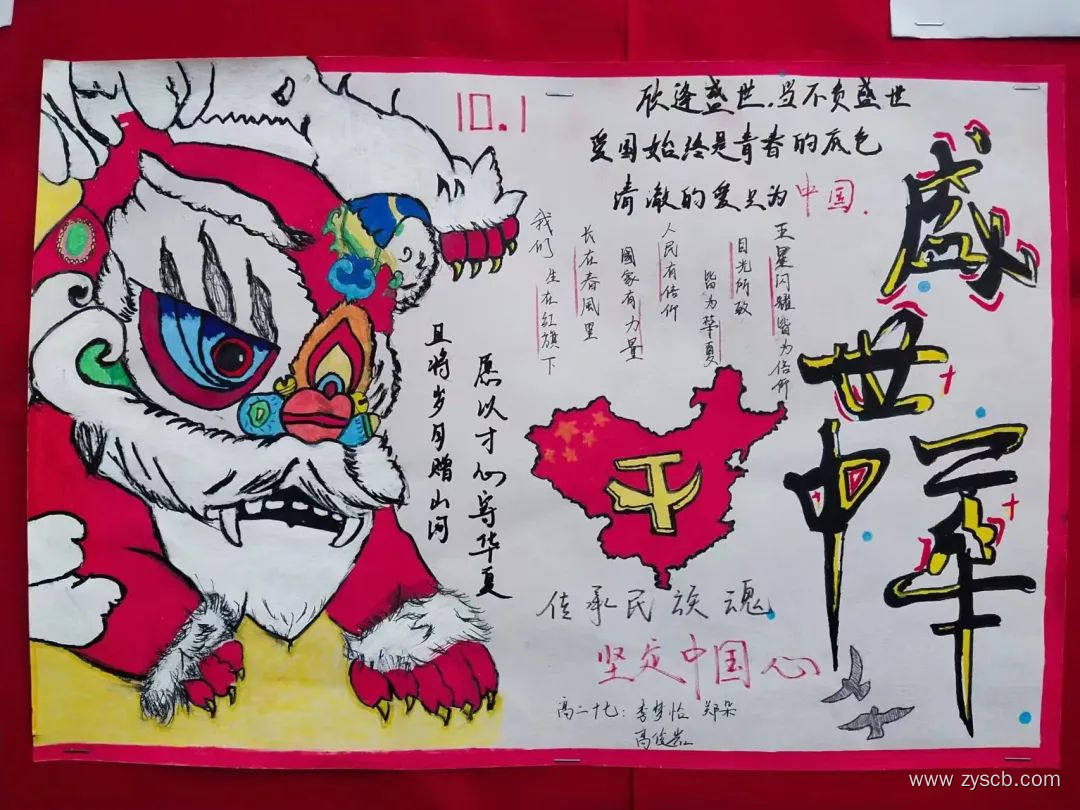 10.1
欣逢盛世,当不负盛世
爱国始终是青春的底色
清澈的爱只为中国.
盛世
中华
五星闪耀皆为信仰
目光所致
皆为华夏
人民有信仰
國家有力量
长在春风里
我们生在红旗下
愿以寸心寄华夏
且将岁月赠山河
传承民族魂
坚定中国心
高二十七:李梦怡 郑朵
www.zyscb.com